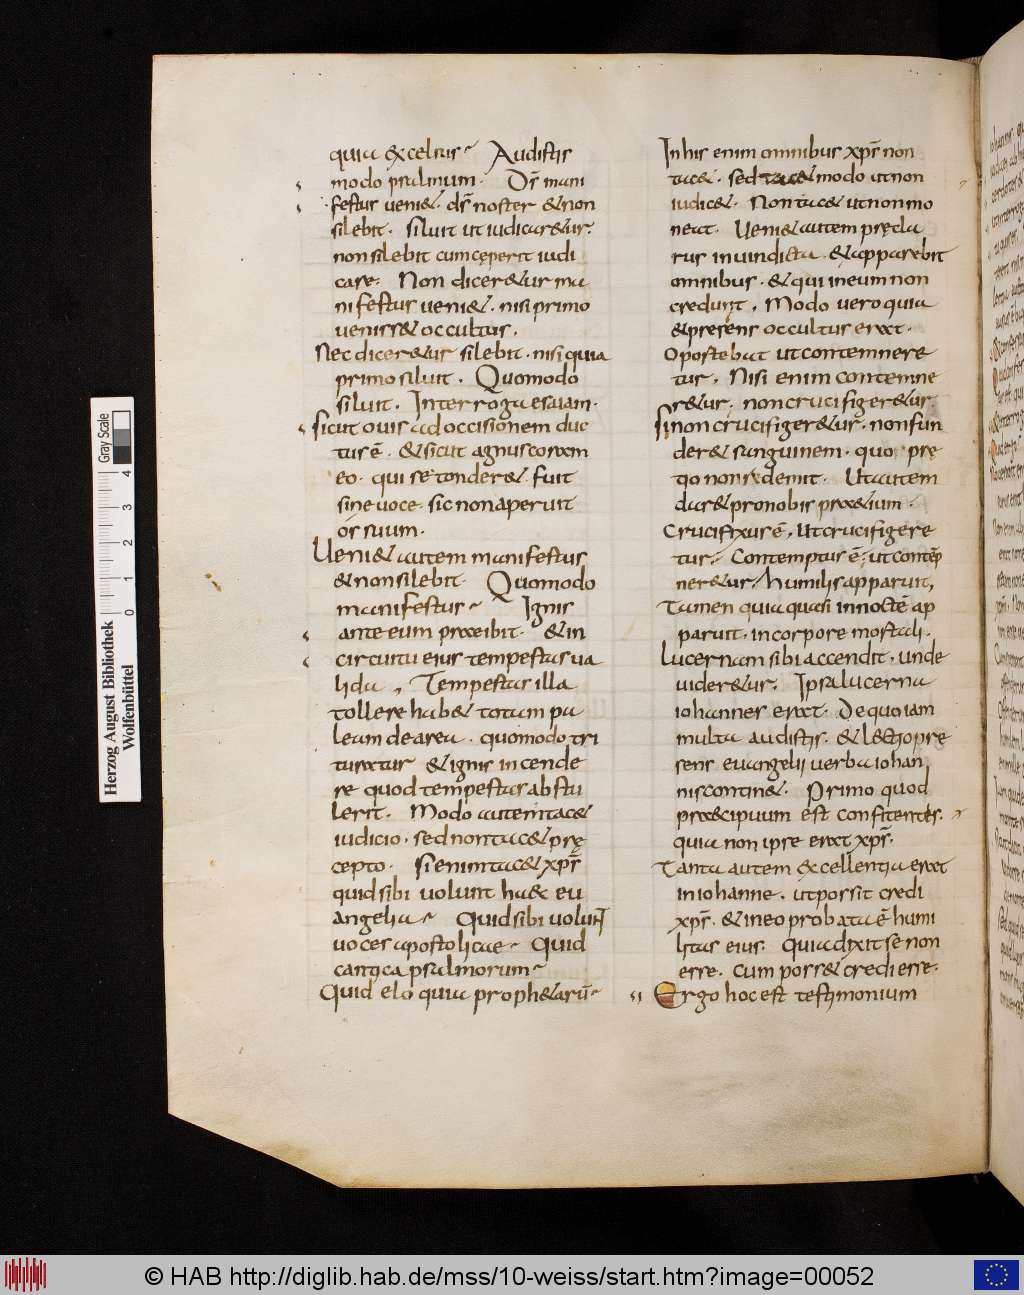 quia excelsus Audistis
modo psalmum. Ds̄ mani
festus ueni&. ds̄ noster &non
silebit. Siluit ut iudicar&ur.
non silebit cum cęperit iudi
care. Non dicer&ur ma
nifestus ueni&. nisi primo
ueniss& occultus.
Nec dicer&ur silebit. nisi quia
primo siluit. Quomodo
siluit. Interroga esaiam.
Sicut ouis ad occisionem duc
tus ē. & sicut agnus coram
eo. qui se tonder&. fuit
sine uoce. sic non aperuit
ós suum.
Ueni& autem manifestus
& non silebit. Quomodo
manifestus Ignis
ante eum praeibit. & in
circuitu eius tempestas ua
lida, Tempestas illa
tollere hab& totam pa
leam de area. quomodo tri
turatur & ignis incende
re quod tempestas abstu
lerit. Modo autem tac&
iudicio. sed non tac& prę
cepto. Si enim tac& xps̄
quid sibi uolunt haec eu
angelia Quid sibi uolunt
uoces apostolicae Quid
cantica psalmorum
Quid elo quia proph&arū
In his enim omnibus xps̄ non
tac&. sed tac& modo ut non
iudic&. Non tac& ut non mo
neat. Ueni& autem pręcla
rus in uindicta. & apparebit
omnibus. & qui in eum non
credunt. Modo uero quia
& presens occultus erat.
Oportebat ut contemnere
tur. Nisi enim contemne
r&ur. non crucifiger&ur
Si non crucifiger&ur. non fun
der& sanguinem. quo prę
tio nos redemit. Ut autem
dar& pro nobis praetium.
Crucifixus ē, Ut crucifigere
tur. Contemptus ē; ut contēp
ner&ur. humilis apparuit,
Tamen quia quasi in noctē ap
paruit. in corpore mortali.
Lucernam sibi accendit. unde
uider&ur. Ipsa lucerna
iohannes erat. De quo iam
multa audistis. & lectio pre
sens euangelij uerba iohan
nis contin&. Primo quod
praecipuum est confitentes.
quia non ipse erat xps̄.
Tanta autem excellentia erat
in iohanne. ut possit credi
xps̄. & in eo probata ē humi
litas eius. Quia dixit se non
esse. cum poss& credi esse.
Ergo hoc est testimonium
Herzog August Bibliothek
Wolfenbüttel
Gray Scale
0 1 2 3 4
© HAB http://diglib.hab.de/mss/10-weiss/start.htm?image=00052